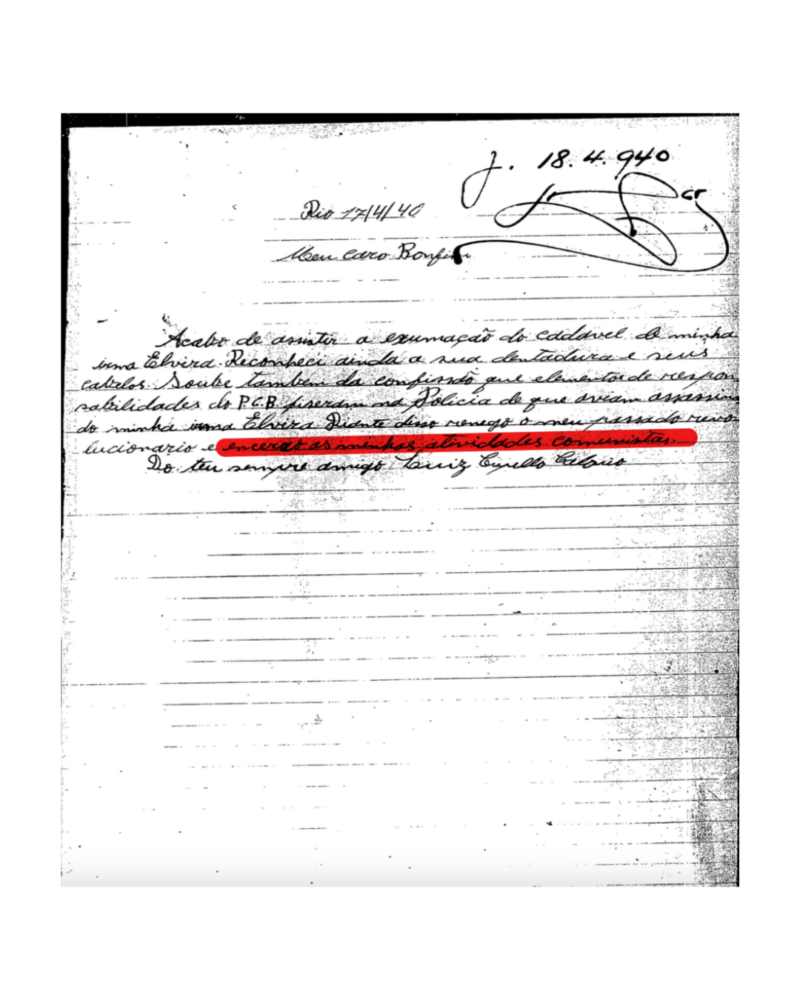 J. 18.4.940
Rio 17/4/40
Meu caro Bonfim
Acabo de assistir a exumação do cadavel de minha
irma Elvira. Reconheci ainda a sua dentadura e seus
cabelos. Soube tambem da confissão que elementos de respon
sabilidades do P.C.B. fiseram na Policia de que aviam assassina
do minha irma Elvira Diante disso renego o meu passado revo
lucionario e encerro as minhas atividades comunistas.
Do teu sempre amigo Luiz Cupello Calonio